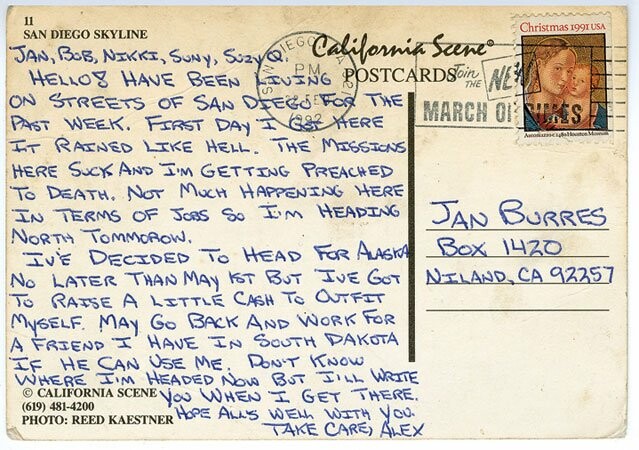 11
SAN DIEGO SKYLINE
California Scene®
POSTCARDS
SAN DIEGO
PM
1992
Join THE
MARCH OF DIMES
Christmas 1991 USA
JAN, BOB, NIKKI, SUNY, SUZY Q.
HELLO! HAVE BEEN LIVING
ON STREETS OF SAN DIEGO FOR THE
PAST WEEK. FIRST DAY I GOT HERE
IT RAINED LIKE HELL. THE MISSIONS
HERE SUCK AND I'M GETTING PREACHED
TO DEATH. NOT MUCH HAPPENING HERE
IN TERMS OF JOBS SO I'M HEADING
NORTH TOMMOROW.
IV'E DECIDED TO HEAD FOR ALASKA
NO LATER THAN MAY 1ST BUT I'VE GOT
TO RAISE A LITTLE CASH TO OUTFIT
MYSELF. MAY GO BACK AND WORK FOR
A FRIEND I HAVE IN SOUTH DAKOTA
IF HE CAN USE ME. DON'T KNOW
WHERE I'M HEADED NOW BUT I'LL WRITE
YOU WHEN I GET THERE.
HOPE ALL'S WELL WITH YOU.
TAKE CARE, ALEX
© CALIFORNIA SCENE
(619) 481-4200
PHOTO: REED KAESTNER
JAN BURRES
BOX 1420
NILAND, CA 92257